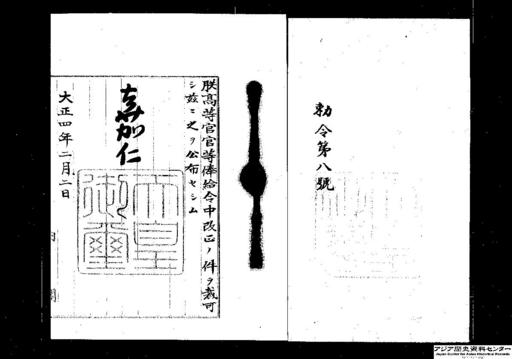 勅令第八號
朕高等官官等俸給令中改正ノ件ヲ裁可
シ茲ニ之ヲ公布セシム
嘉仁
天皇
御璽
大正四年二月二日
内閣
アジア歴史資料センター
Japan Center for Asian Historical Records